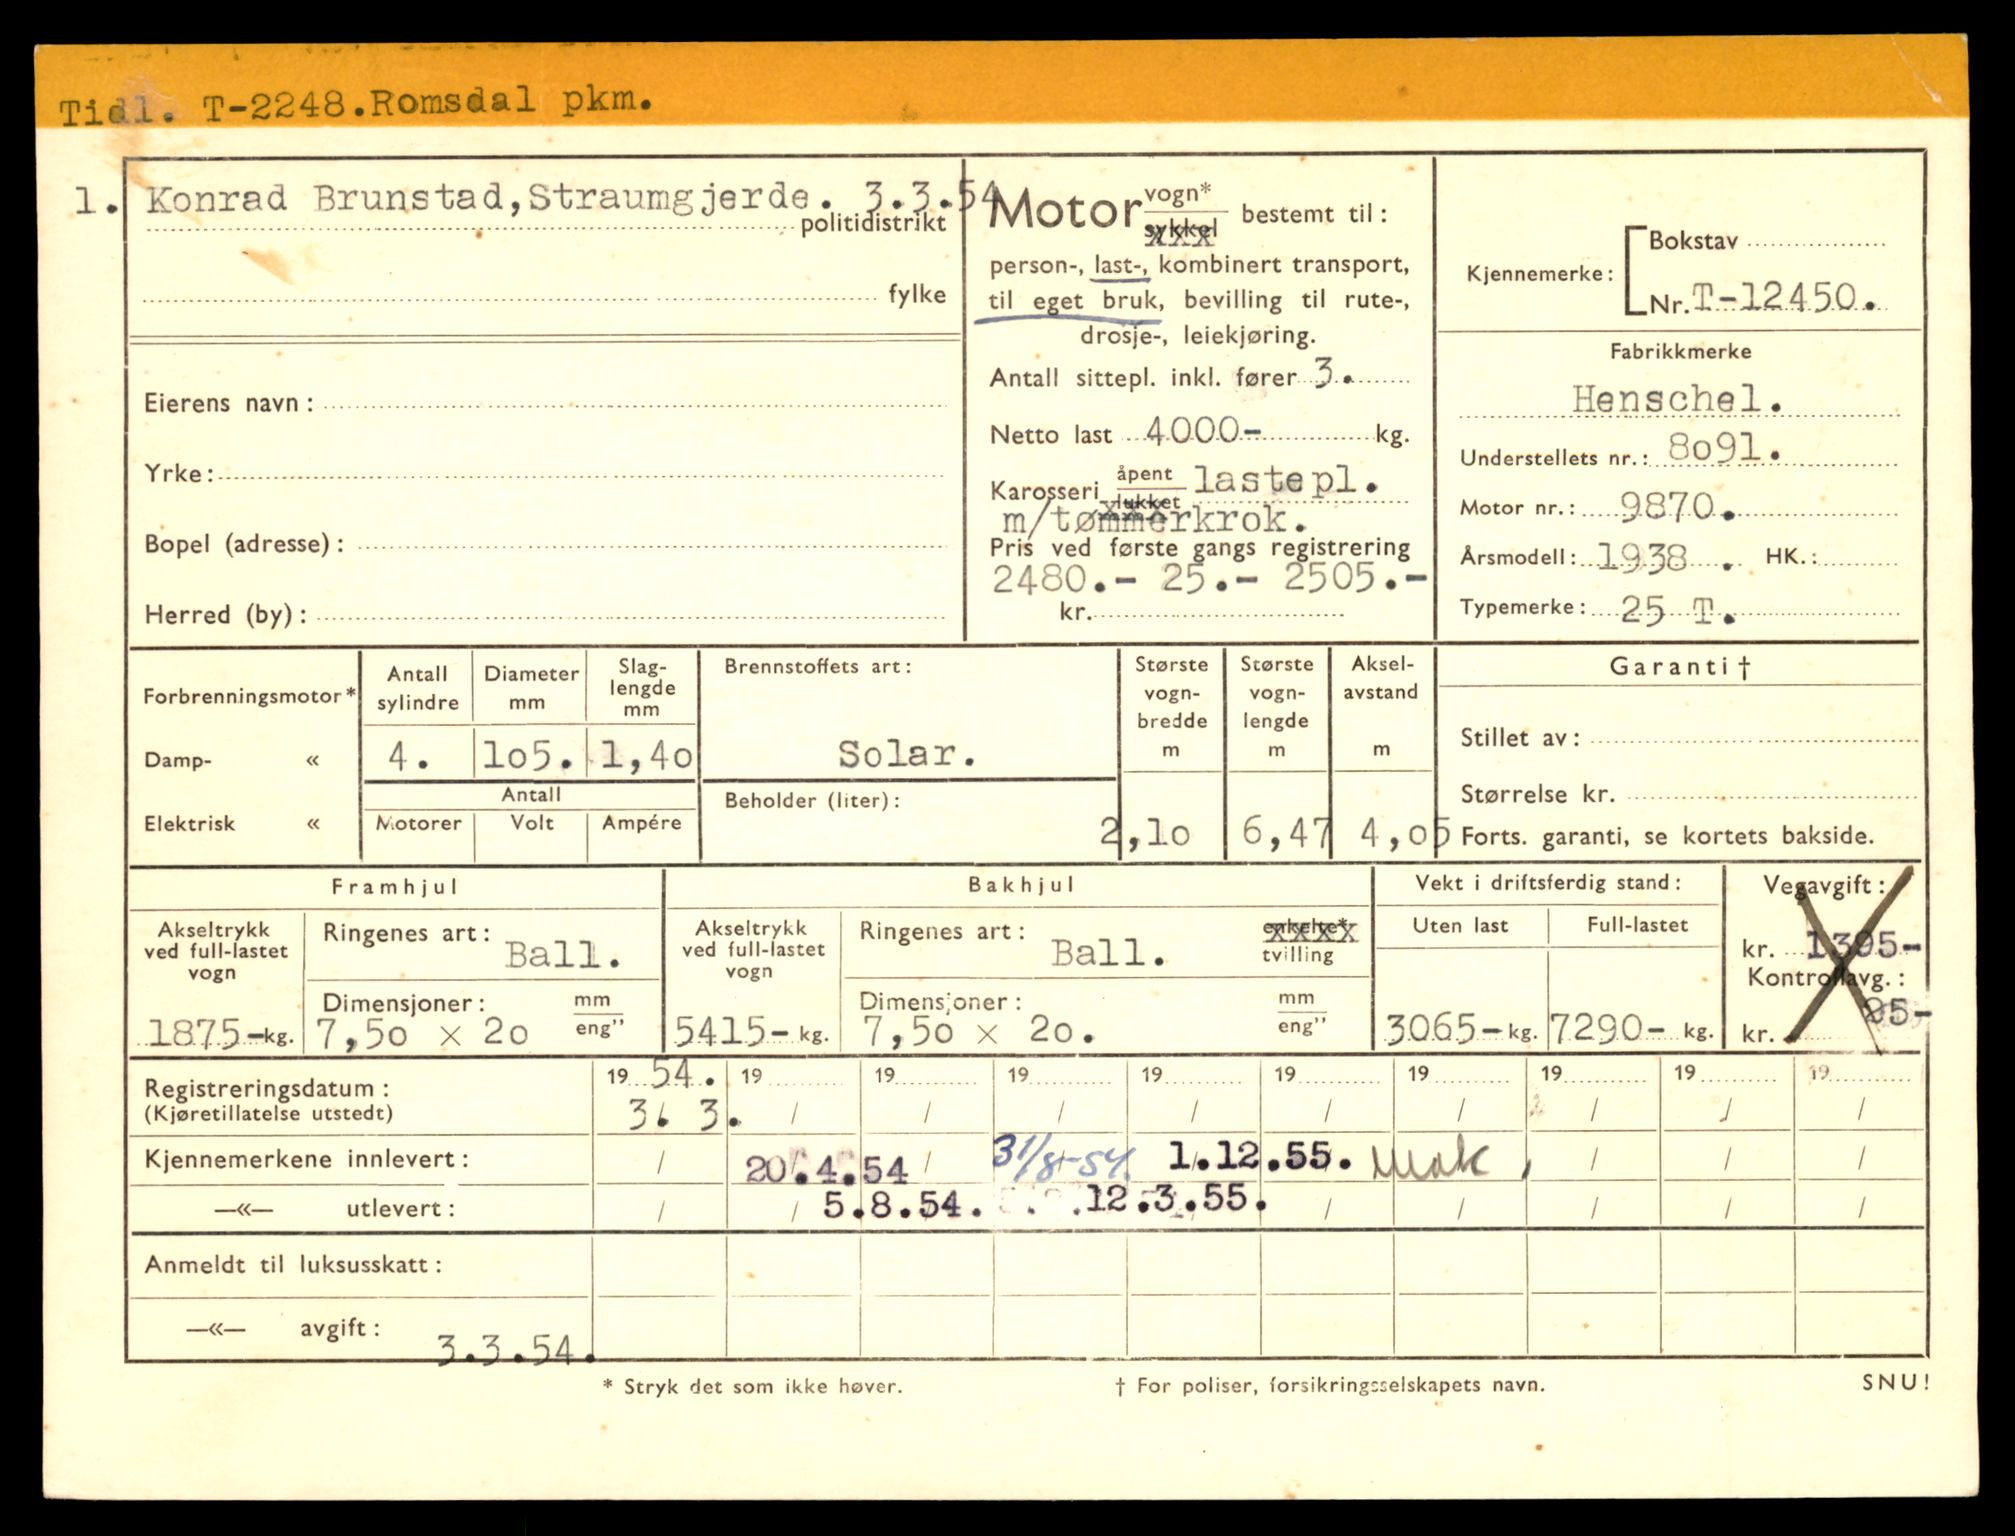 Tidl. T-2248.Romsdal pkm.
1. Konrad Brunstad,Straumgjerde. 3.3.54
politidistrikt
fylke
Eierens navn:
Yrke:
Bopel (adresse):
Herred (by):
Motor vogn* sykkel bestemt til:
person-, last-, kombinert transport,
til eget bruk, bevilling til rute-,
drosje-, leiekjøring.
Antall sittepl. inkl. fører 3.
Netto last 4000- kg.
Karosseri åpent lukket lastepl.
m/tømmerkrok.
Pris ved første gangs registrering
2480.- 25.- 2505.-
kr.
Kjennemerke: Bokstav
Nr. T-12450.
Fabrikkmerke
Henschel.
Understellets nr.: 8o91.
Motor nr.: 9870.
Årsmodell: 1938 . HK.:
Typemerke: 25 T.
Forbrenningsmotor*
Damp- «
Elektrisk «
Antall sylindre
Diameter mm
Slag-lengde mm
4. 1o5. 1,4o
Antall
Motorer Volt Ampére
Brennstoffets art:
Solar.
Beholder (liter):
Største vogn-bredde m
2,1o
Største vogn-lengde m
6,47
Aksel-avstand m
4,o5
Garanti†
Stillet av:
Størrelse kr.
Forts. garanti, se kortets bakside.
Framhjul
Akseltrykk ved full-lastet vogn
1875- kg.
Ringenes art: Ball.
Dimensjoner: mm eng"
7,5o x 2o
Bakhjul
Akseltrykk ved full-lastet vogn
5415- kg.
Ringenes art: Ball. enkelte* tvilling
Dimensjoner: mm eng"
7,5o x 2o.
Vekt i driftsferdig stand:
Uten last Full-lastet
3065- kg. 7290- kg.
Vegavgift:
kr. 1395-
Kontrollavg.:
kr. 25-
Registreringsdatum: 19 54. 19 19 19 19 19 19 19 19 19
(Kjøretillatelse utstedt) 3. 3. / / / / / / / / /
Kjennemerkene innlevert: / 20.4.54 / 31/8-54. 1.12.55. Mak / / / /
—«— utlevert: / / 5.8.54. 12.3.55. / / / / /
Anmeldt til luksusskatt:
—«— avgift: 3.3.54.
* Stryk det som ikke høver.
† For poliser, forsikringsselskapets navn.
SNU!